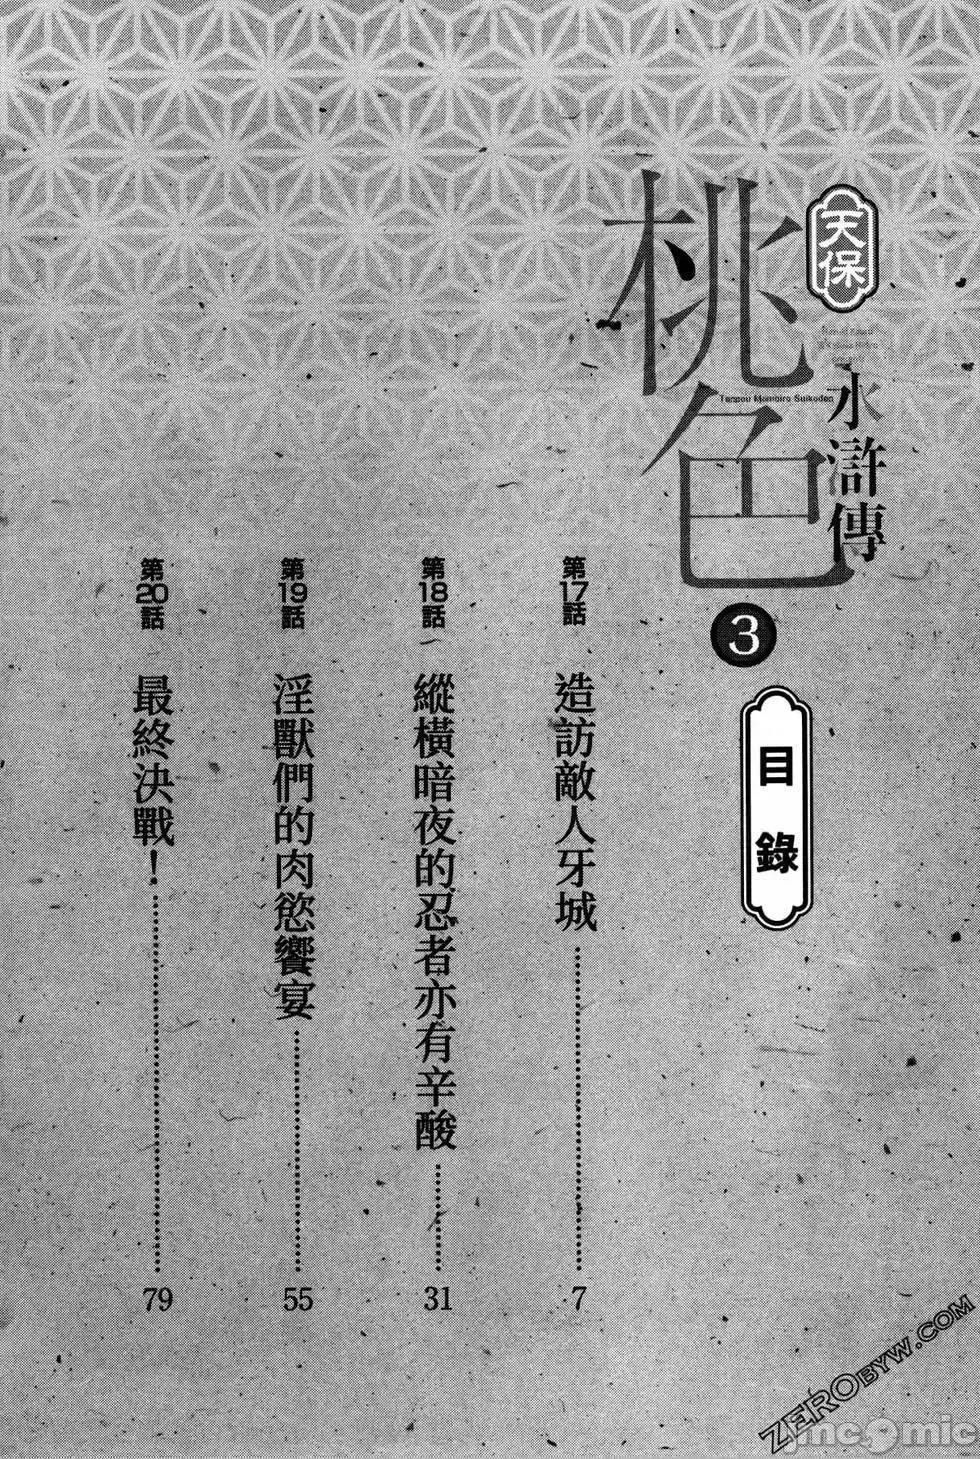 天保
水滸傳
桃色
Tenpou Momoiro Suikoden
3
目錄
第17話 造訪敵人牙城 7
第18話 縱橫暗夜的忍者亦有辛酸 31
第19話 淫獸們的肉慾饗宴 55
第20話 最終決戰！ 79
ZEROBYW.COM
jmcomic